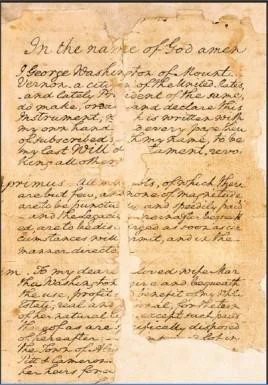 In the name of God amen
I George Washington of Mount
Vernon a citizen of the United States,
and lately Pr ident of the same,
do make, orda and declare this
Instrument, w h is written with
my own hand d every page there
of subscribed h my name, to be
my last Will & tament, revo
king all other
Imprimus. All my bts, of which there
are but few, and none of magnitude,
are to be punctu and speedily paid
and the Legacies hereinafter bequeath
ed are to be dis ged as soon as cir
cumstances will rmit, and in the
manner directe
Item. To my deare loved wife Mar
tha Washington ive and bequeath
the use, profit benefit of my whole
Estate, real and nal, for the term
of her natural li except such parts
thereof as are s cifically disposed
of hereafter:
the Town of Alex lot in
Pitt & Cameron
her heirs forev